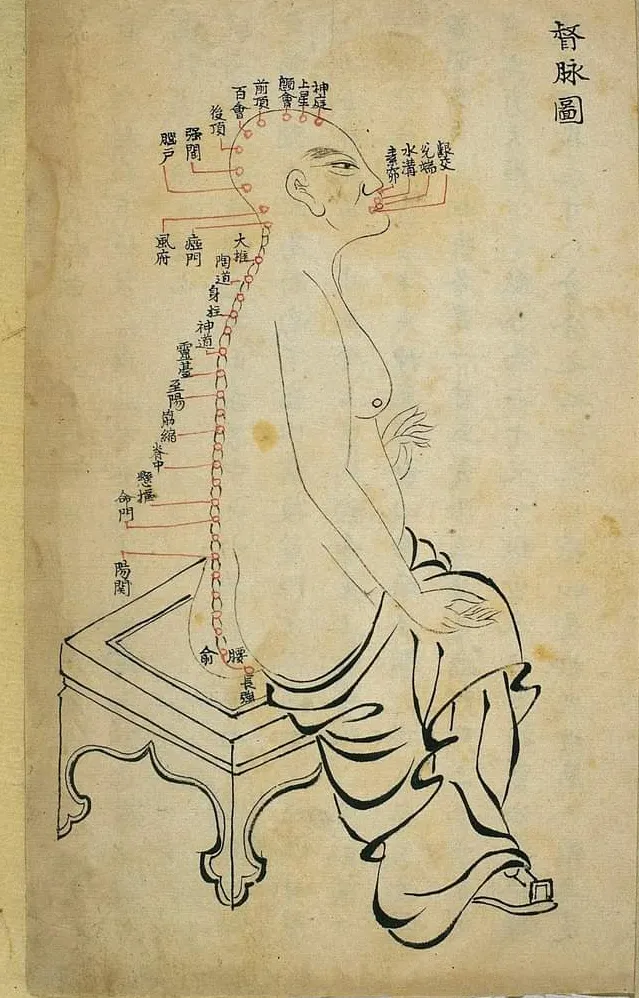 督脉圖
神庭
上星
顖會
前頂
百會
後頂
强間
腦戶
齦交
兊端
水溝
素窌
風府
瘂門
大椎
陶道
身柱
神道
靈臺
至陽
筋縮
脊中
懸樞
命門
陽関
腰俞
長強